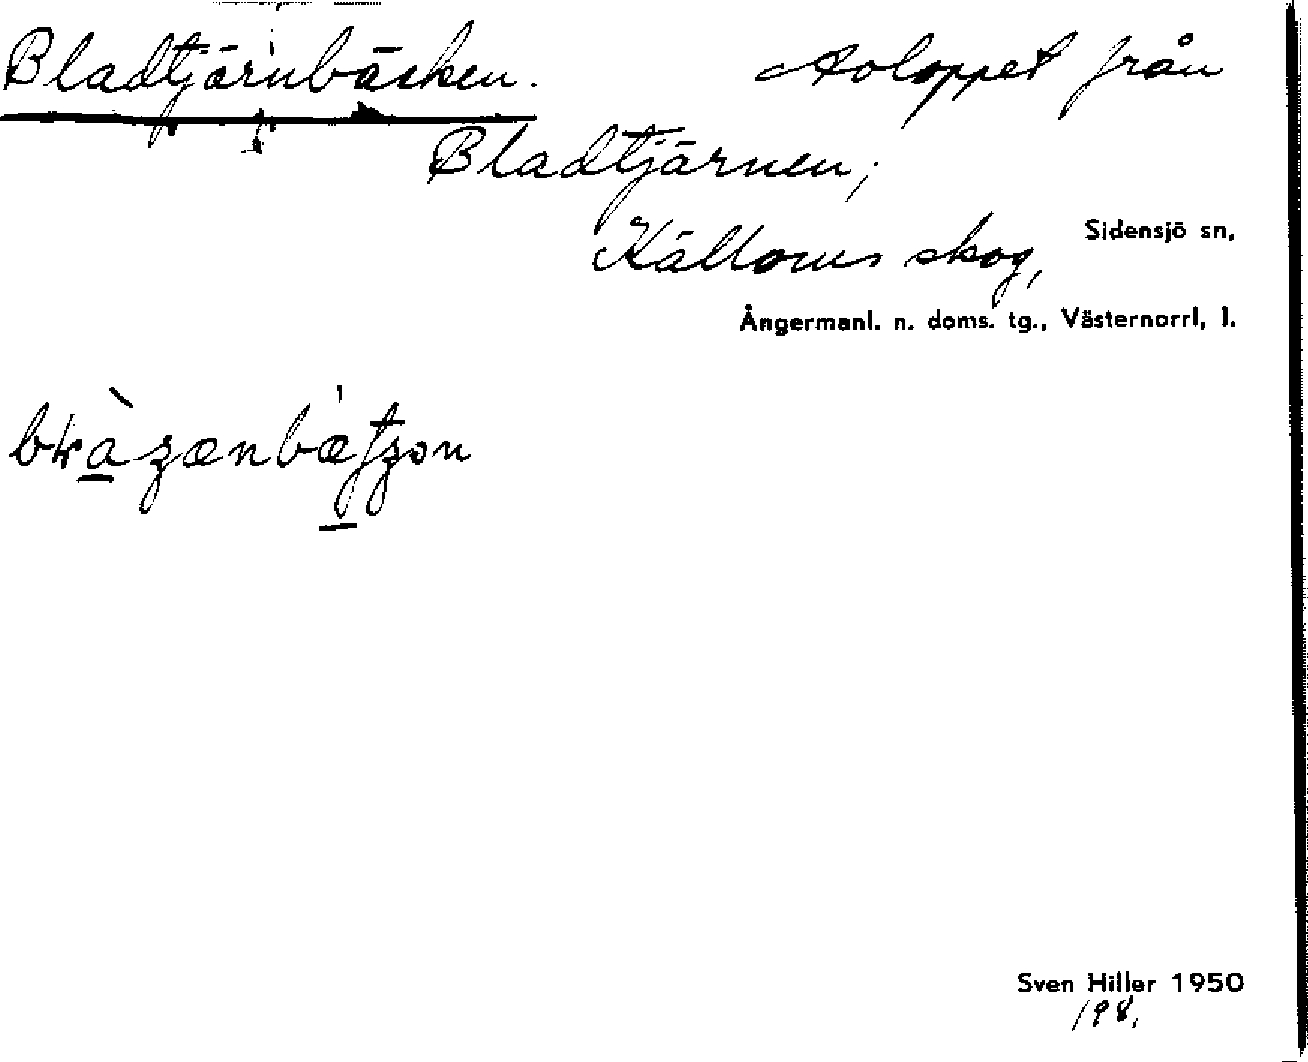 Bladtjärnbäcken. Avloppet från
Bladtjärnen;
Källoms skog,
Sidensjö sn,
Ångermanl. n. doms. tg., Västernorrl, l.
Sven Hiller 1950